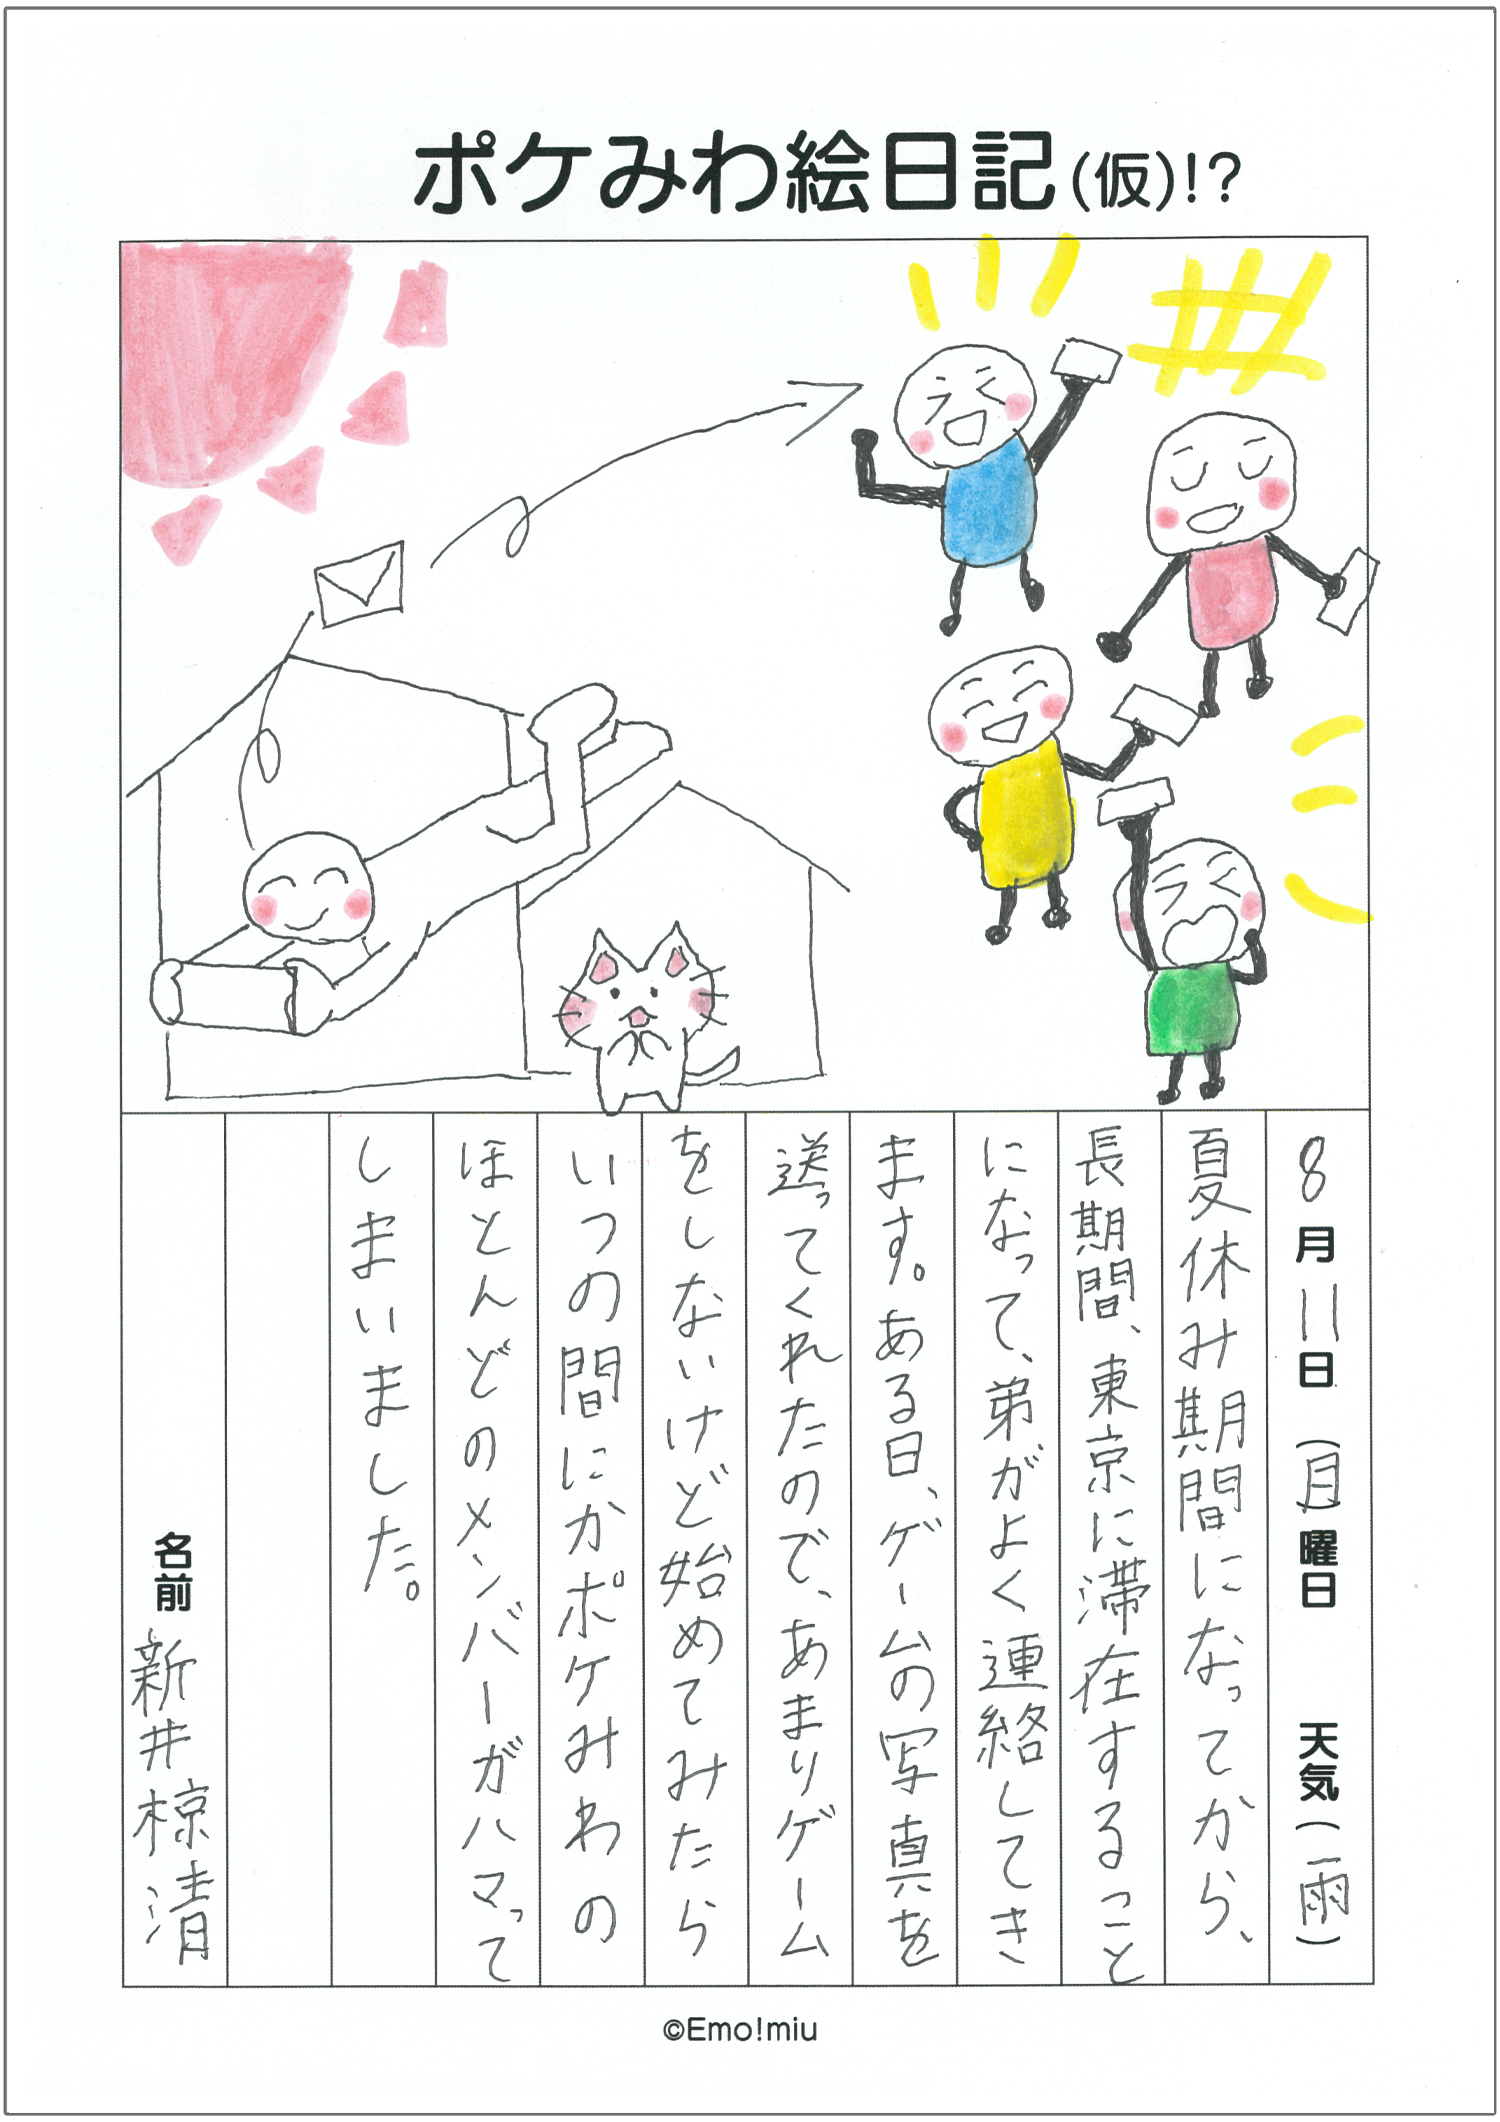 ポケみわ絵日記(仮)!?
8月11日(月)曜日 天気(雨)
夏休み期間になってから、
長期間、東京に滞在すること
になって、弟がよく連絡してき
ます。ある日、ゲームの写真を
送ってくれたので、あまりゲーム
をしないけど始めてみたら
いつの間にかポケみわの
ほとんどのメンバーがハマって
しまいました。
名前 新井椋清
©Emo!miu